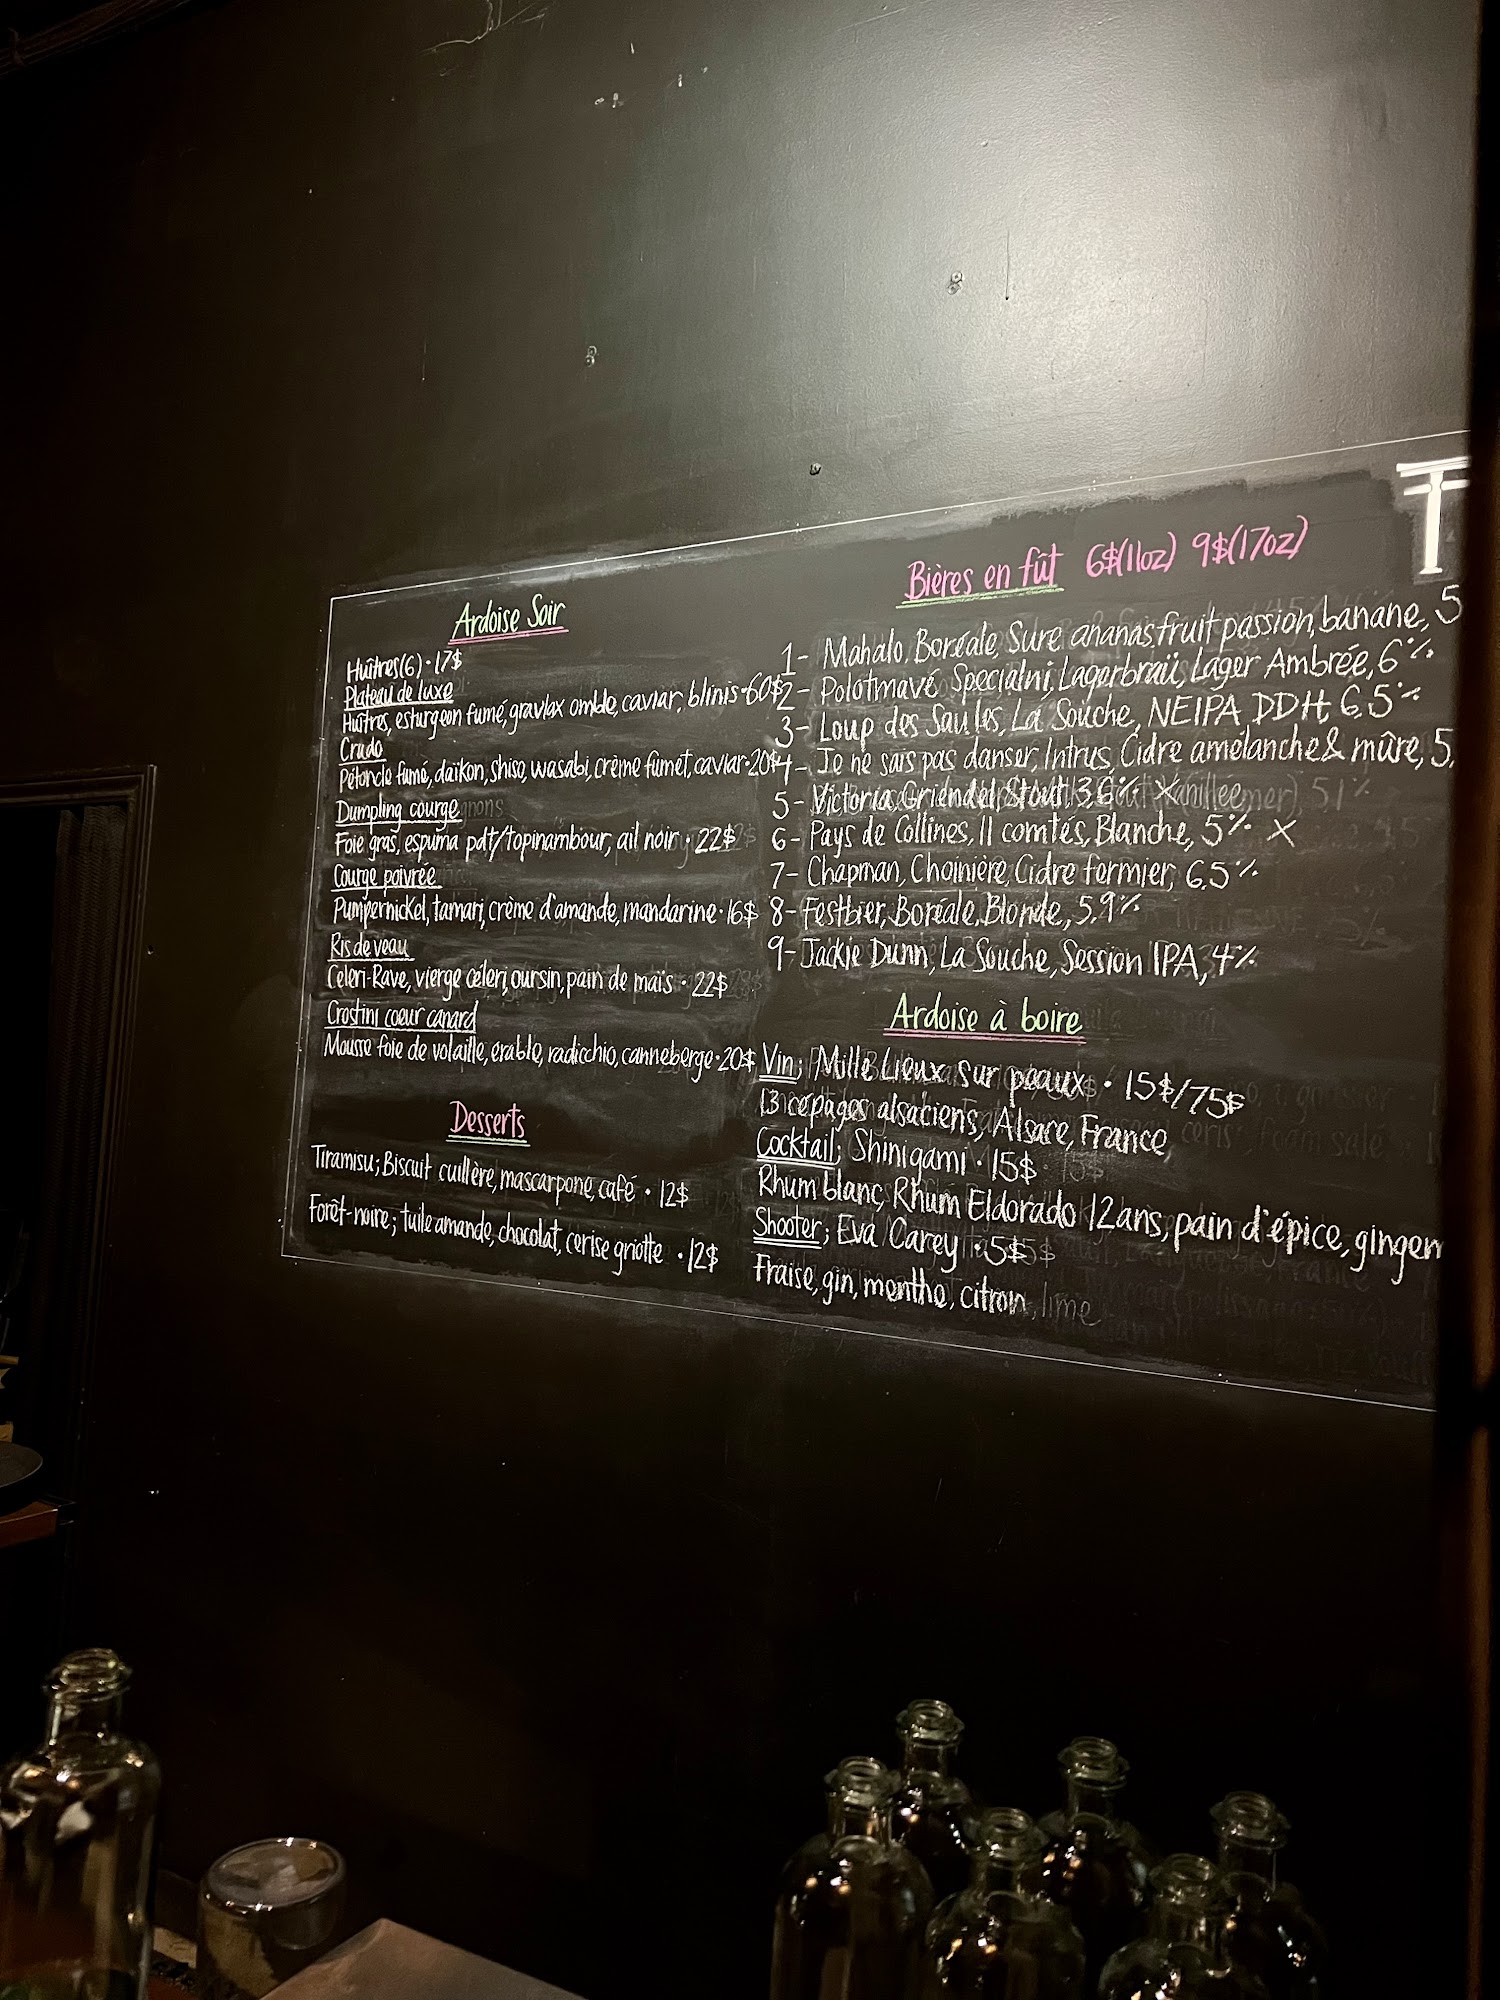 Ardoise Soir
Huîtres(6) • 17$
Plateau de luxe
Huîtres, esturgeon fumé, gravlax omble, caviar, blinis • 60$
Crudo
Pétoncle fumé, daïkon, shiso, wasabi, crème fumet, caviar • 20$
Dumpling courge
Foie gras, espuma pdt/topinambour, ail noir • 22$
Courge poivrée
Pumpernickel, tamari, crème d'amande, mandarine • 16$
Ris de veau
Céleri-Rave, vierge céleri, oursin, pain de maïs • 22$
Crostini coeur canard
Mousse foie de volaille, érable, radicchio, canneberge • 20$
Desserts
Tiramisu; Biscuit cuillère, mascarpone, café • 12$
Forêt-noire; tuile amande, chocolat, cerise griotte • 12$
Bières en fût 6$(11oz) 9$(17oz)
1- Mahalo, Boréale, Sure ananas, fruit passion, banane, 5
2- Polotmavé Specialni, Lagerbraü, Lager Ambrée, 6%
3- Loup des Saules, La Souche, NEIPA DDH, 6.5%
4- Je ne sais pas danser, Intrus, Cidre amélanche & mûre, 5.
5- Victoria, Griendel, Stout, 3.6% X
6- Pays de Collines, 11 comtés, Blanche, 5% X
7- Chapman, Choinière, Cidre fermier, 6.5%
8- Festbier, Boréale, Blonde, 5.9%
9- Jackie Dunn, La Souche, Session IPA, 4%
Ardoise à boire
Vin; Mille Lieux sur peaux • 15$/75$
13 cépages alsaciens, Alsace, France
Cocktail; Shinigami • 15$
Rhum blanc, Rhum Eldorado 12 ans, pain d'épice, gingem
Shooter; Eva Carey • 5$
Fraise, gin, menthe, citron